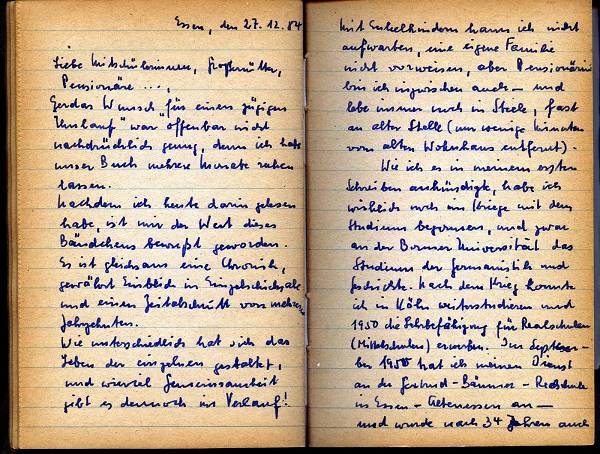 Essen, den 27.12.84
Liebe Mitschülerinnen, Großmütter,
Pensionäre ...,
Gerdas Wunsch für einen zügigen
"Umlauf" war offenbar nicht
nachdrücklich genug, denn ich habe
unser Buch mehrere Monate ruhen
lassen.
Nachdem ich heute darin gelesen
habe, ist mir der Wert dieses
Bändchens bewußt geworden.
Es ist gleichsam eine Chronik,
gewährt Einblick in Einzelschicksale
und einen Zeitabschnitt von mehreren
Jahrzehnten.
Wie unterschiedlich hat sich das
Leben der einzelnen gestaltet,
und wieviel Gemeinsamkeit
gibt es dennoch im Verlauf!
Mit Enkelkindern kann ich nicht
aufwarten, eine eigene Familie
nicht vorweisen, aber Pensionärin
bin ich inzwischen auch – und
lebe immer noch in Steele, fast
an alter Stelle (nur wenige Minuten
vom alten Wohnhaus entfernt).
Wie ich es in meinem ersten
Schreiben ankündigte, habe ich
wirklich noch im Kriege mit dem
Studium begonnen, und zwar
an der Bonner Universität das
Studium der Germanistik und
Geschichte. Nach dem Krieg konnte
ich in Köln weiterstudieren und
1950 die Lehrbefähigung für Realschulen
(Mittelschulen) erwerben. Im Septem-
ber 1950 trat ich meinen Dienst
an der Gertrud-Bäumer-Realschule
in Essen-Altenessen an –
und wurde nach 34 Jahren auch